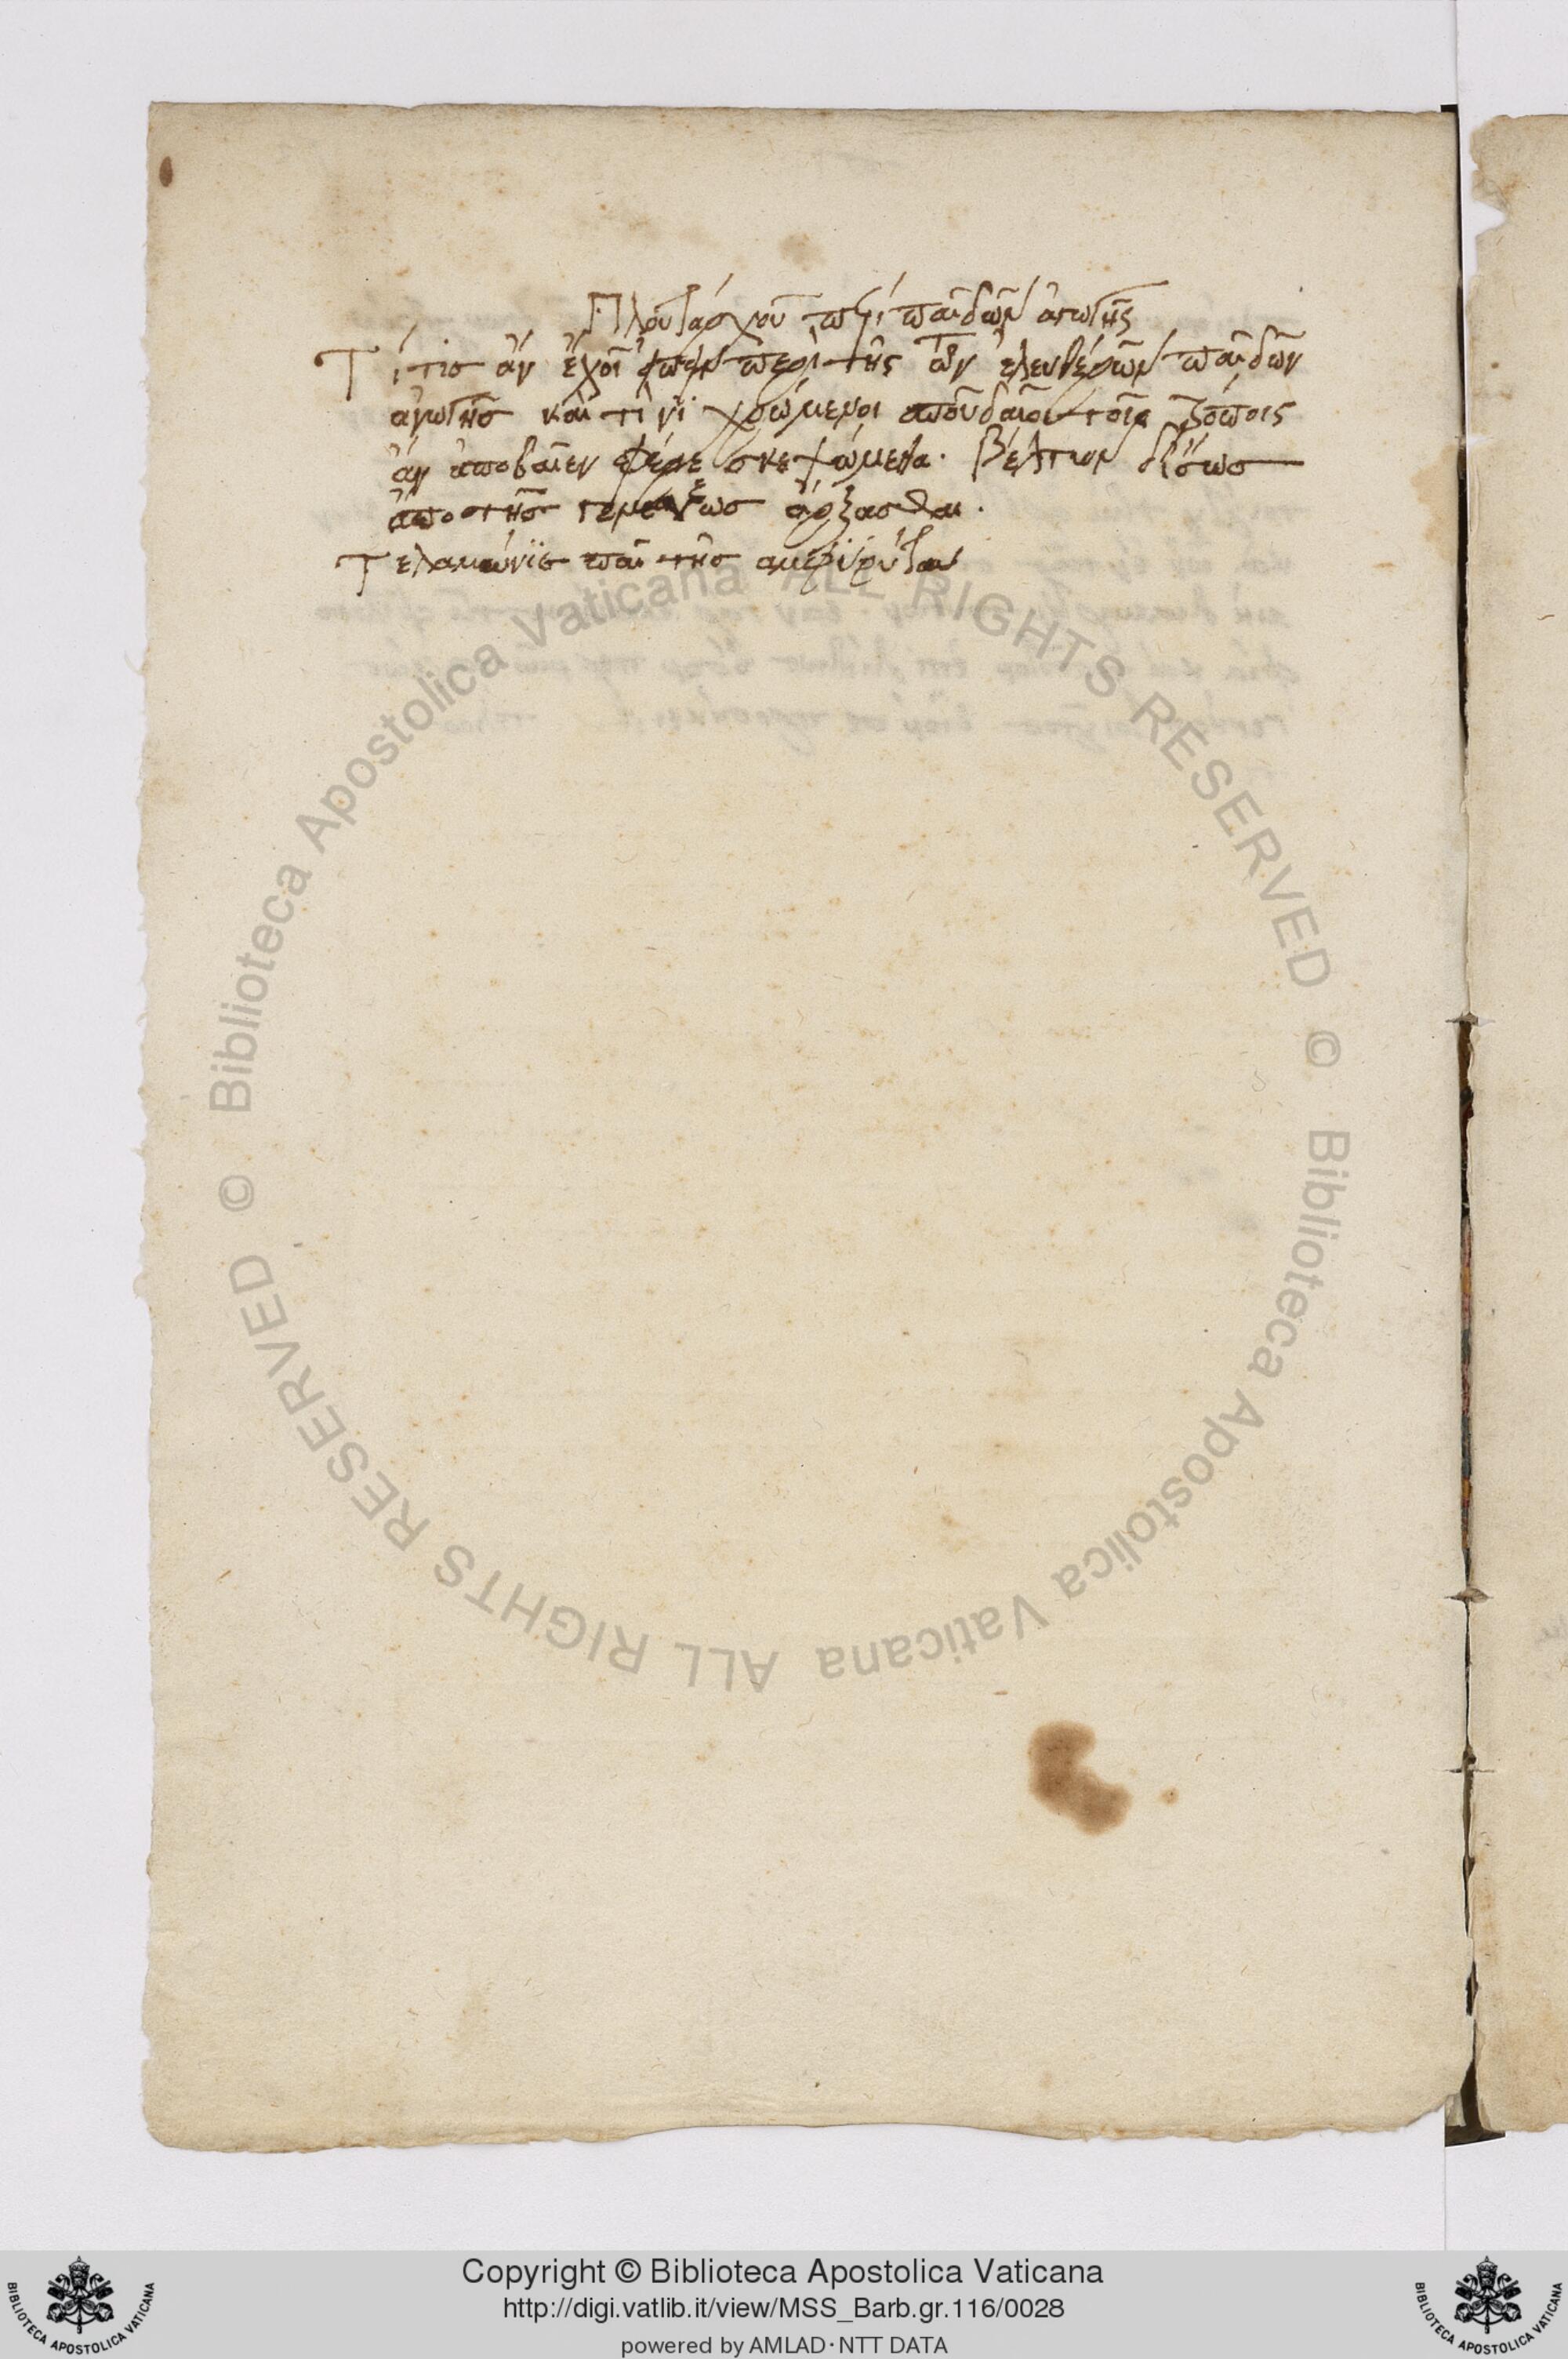 Πλουτάρχου περί παίδων ἀγωγῆς
Τί τις ἂν ἔχοι εἰπεῖν περὶ τῆς τῶν ἐλευθέρων παίδων
ἀγωγῆς καὶ τίνι χρώμενοι σπουδαῖοι τοῖς τρόποις
ἂν ἀποβαῖεν φέρε σκεψώμεθα. βέλτιον δ' ἴσως
ἀπὸ τῆς γενέσεως ἄρξασθαι.
Τελαμώνιε παῖ τῆς ἀμφιρύτου
© Biblioteca Apostolica Vaticana ALL RIGHTS RESERVED © Biblioteca Apostolica Vaticana ALL RIGHTS RESERVED
Copyright © Biblioteca Apostolica Vaticana
http://digi.vatlib.it/view/MSS_Barb.gr.116/0028
powered by AMLAD·NTT DATA
BIBLIOTECA APOSTOLICA VATICANA
BIBLIOTECA APOSTOLICA VATICANA